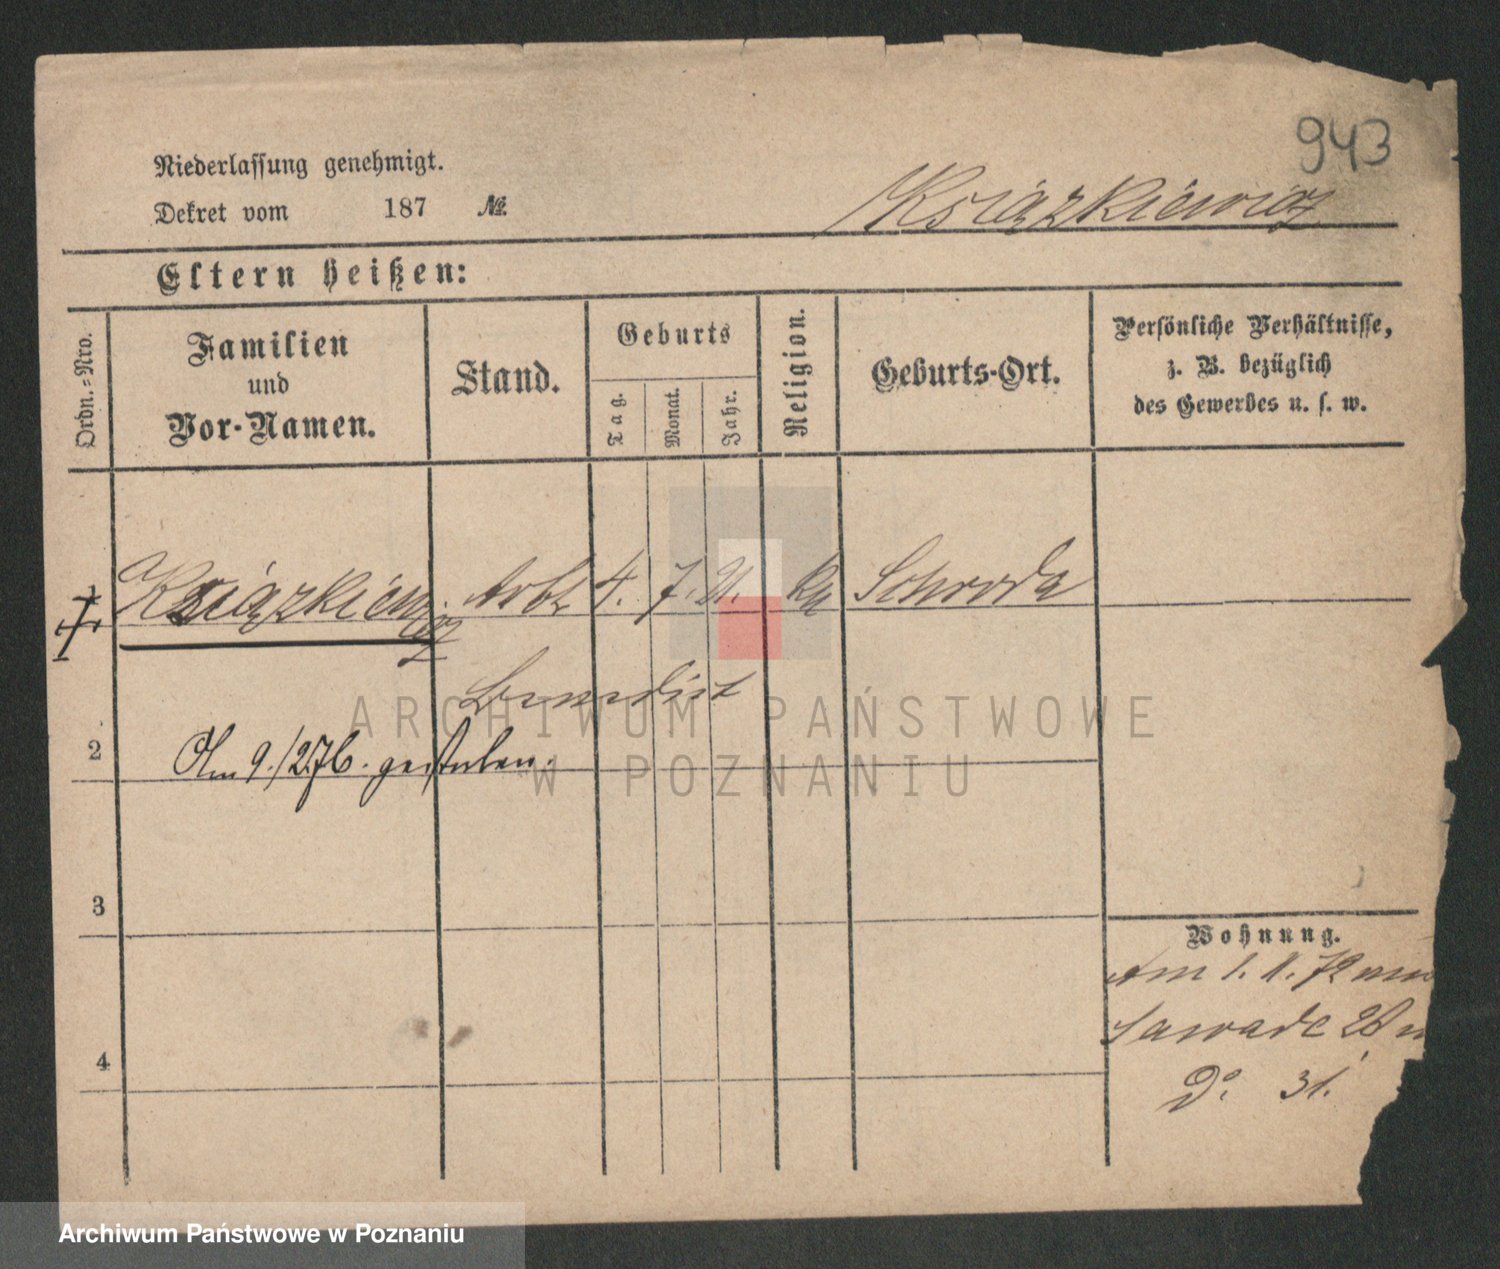 943
Niederlassung genehmigt.
Dekret vom 187 №.
Książkiewicz
Eltern heißen:
Ordn.=Nro.
Familien
und
Vor-Namen.
Stand.
Geburts
Tag.
Monat.
Jahr.
Religion.
Geburts-Ort.
Persönliche Verhältnisse,
z. B. bezüglich
des Gewerbes u. s. w.
1
Książkiewicz Arbt 4. 7. 21. Schroda
Benedict
2
Am 9./2.76. gestorben.
3
Wohnung.
Am 1. 11. 72
Sawade 28
4
Do. 31.
ARCHIWUM PAŃSTWOWE
W POZNANIU
Archiwum Państwowe w Poznaniu